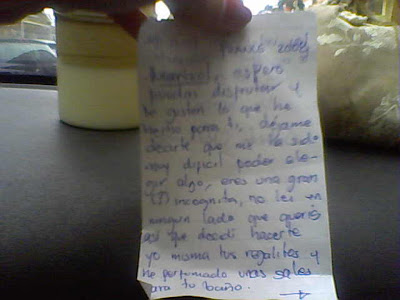 2008
Marisol, espero
puedas disfrutar y
te guste lo que he
hecho para ti, déjame
decirte que me ha sido
muy dificil poder ele-
gir algo, eres una gran
incognita, no leí en
ningun lado que querés
asi que decidí hacerte
yo misma tus regalitos y
he perfumado unas sales
para tu baño.